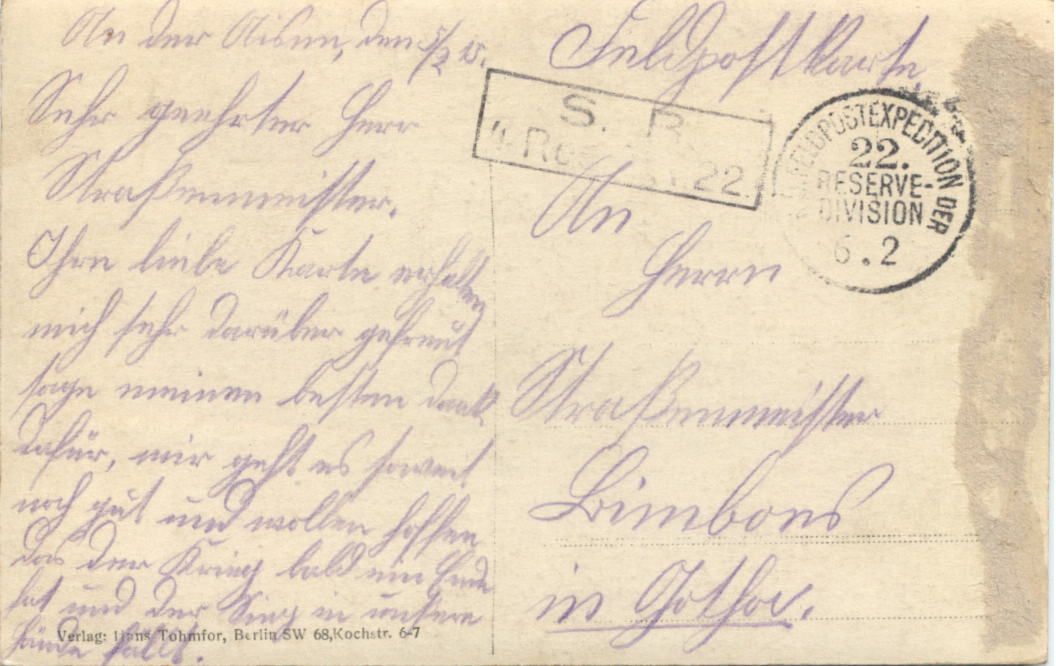 An der Aisne, den 5/2 15.
Sehr geehrter Herr
Straßenmeister.
Ihre liebe Karte erhalten
mich sehr darüber gefreut
sage meinen besten Dank
dafür, mir geht es soweit
noch gut und wollen hoffen
das der Krieg bald ein Ende
hat und der Sieg in unsere
Hände fällt.
Verlag: Hans Tohmfor, Berlin SW 68, Kochstr. 6-7
Feldpostkarte
S. B.
4. Res. 22.
FELDPOSTEXPEDITION DER
22.
RESERVE-
DIVISION
6.2
An
Herrn
Straßenmeister
in Gotha.